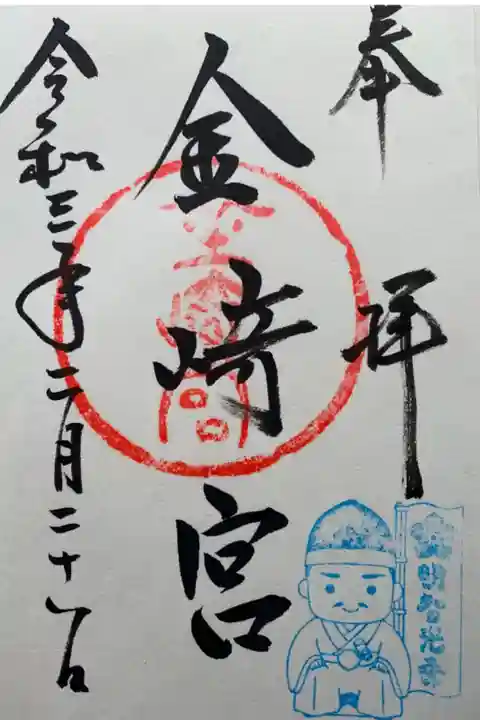 奉拝
金崎宮
令和三年二月二十八日
金崎宮
明智光秀